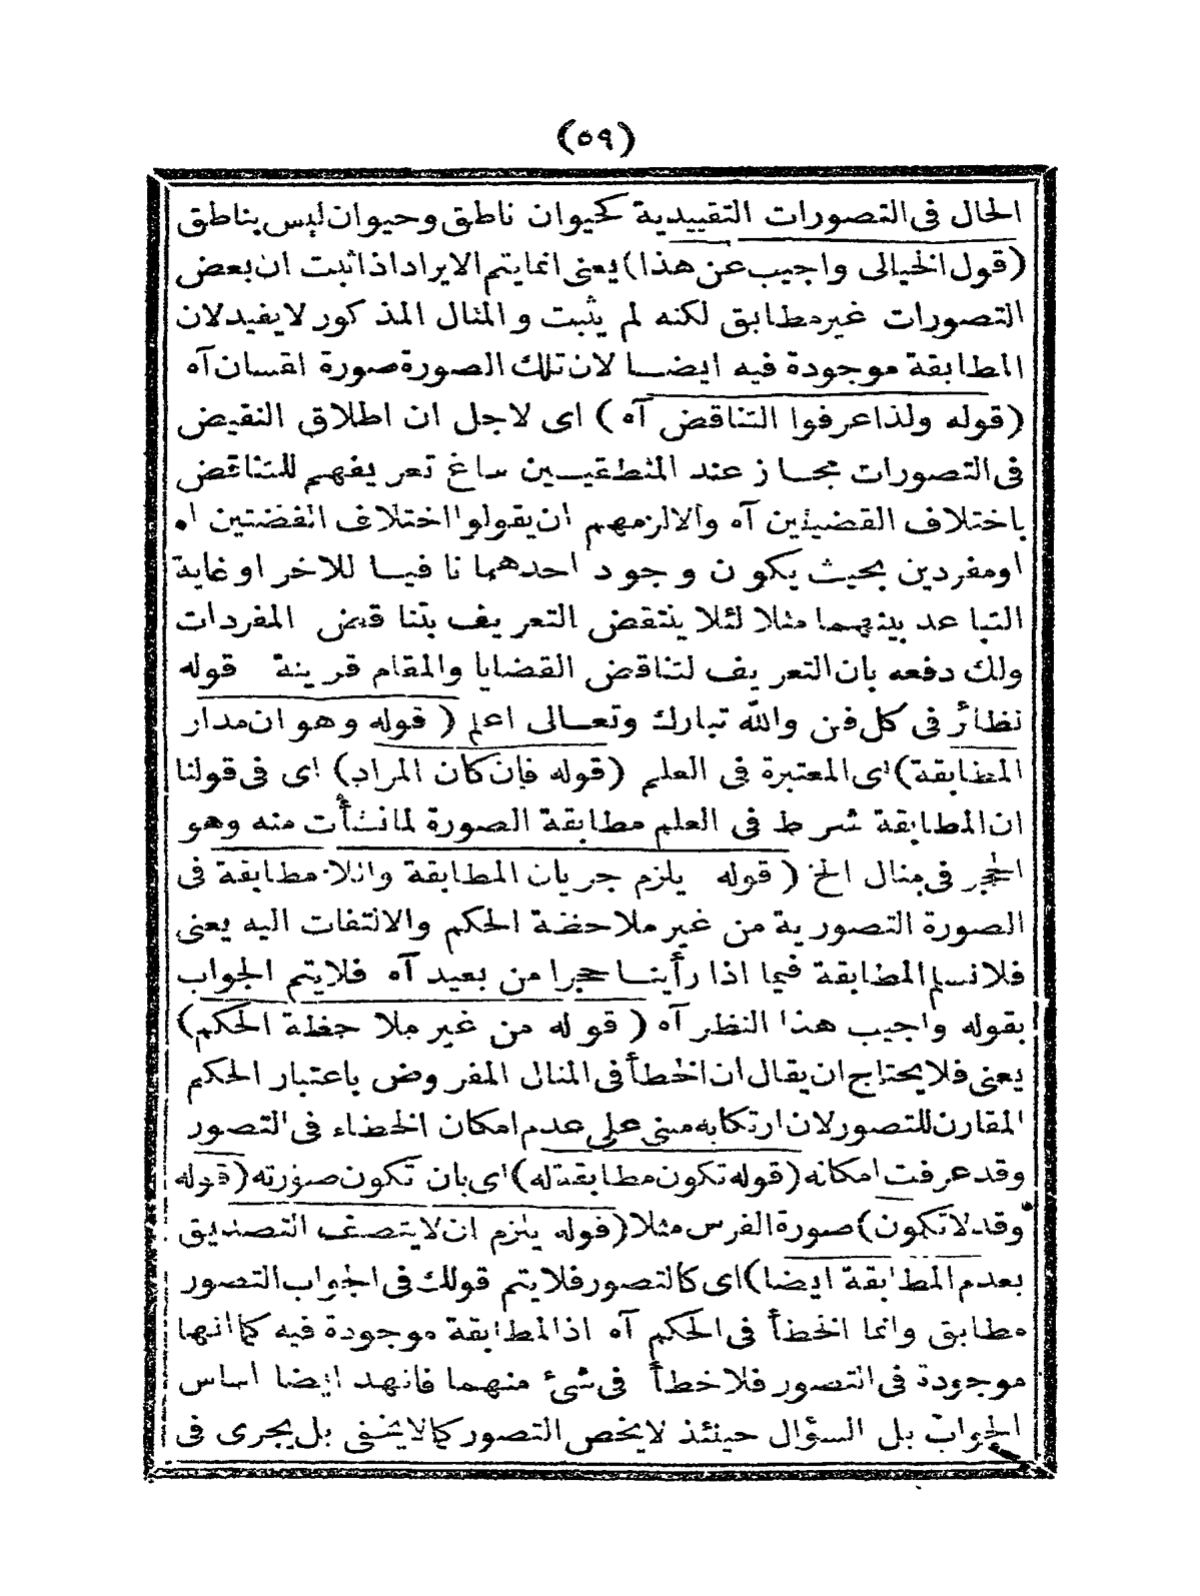 (٥٩)
الحال فى التصورات التقييدية كحيوان ناطق وحيوان ليس بناطق
(قول الخيالى واجيب عن هذا) يعنى انما يتم الايراد اذا ثبت ان بعض
التصورات غير مطابق لكنه لم يثبت والمثال المذكور لا يفيد لان
المطابقة موجودة فيه ايضا لان تلك الصورة صورة انسان آه
(قوله ولذا عرفوا التناقض آه) اى لاجل ان اطلاق النقيض
فى التصورات مجاز عند المنطقيين ساغ تعريفهم للتناقض
باختلاف القضيتين آه والا لزمهم ان يقولوا اختلاف القضيتين
او مفردين بحيث يكون وجود احدهما نافيا للاخر او غاية
التباعد بينهما مثلا لئلا ينتقض التعريف بتناقض المفردات
ولك دفعه بان التعريف لتناقض القضايا والمقام قرينة قوله
نظائر فى كل فن والله تبارك وتعالى اعلم (قوله وهو ان مدار
المطابقة) اى المعتبرة فى العلم (قوله فان كان المراد) اى فى قولنا
ان المطابقة شرط فى العلم مطابقة الصورة لما نشأت منه وهو
الحجر فى مثال الخ (قوله يلزم جريان المطابقة واللا مطابقة فى
الصورة التصورية من غير ملاحظة الحكم والالتفات اليه يعنى
فلا نسلم المطابقة فيما اذا رأينا حجرا من بعيد آه فلا يتم الجواب
بقوله واجيب هذا النظر آه (قوله من غير ملاحظة الحكم)
يعنى فلا يحتاج ان يقال ان الخطأ فى المثال المفروض باعتبار الحكم
المقارن للتصور لان ارتكابه مبنى على عدم امكان الخطاء فى التصور
وقد عرفت امكانه (قوله تكون مطابقة له) اى بان تكون صورته (قوله
وقد لا تكون) صورة الفرس مثلا (قوله يلزم ان لا يتصف التصديق
بعدم المطابقة ايضا) اى كالتصور فلا يتم قولك فى الجواب التصور
مطابق وانما الخطأ فى الحكم آه اذ المطابقة موجودة فيه كما انها
موجودة فى التصور فلا خطأ فى شئ منهما فانهد ايضا اساس
الجواب بل السؤال حينئذ لا يخص التصور كما لا يخفى بل يجرى فى